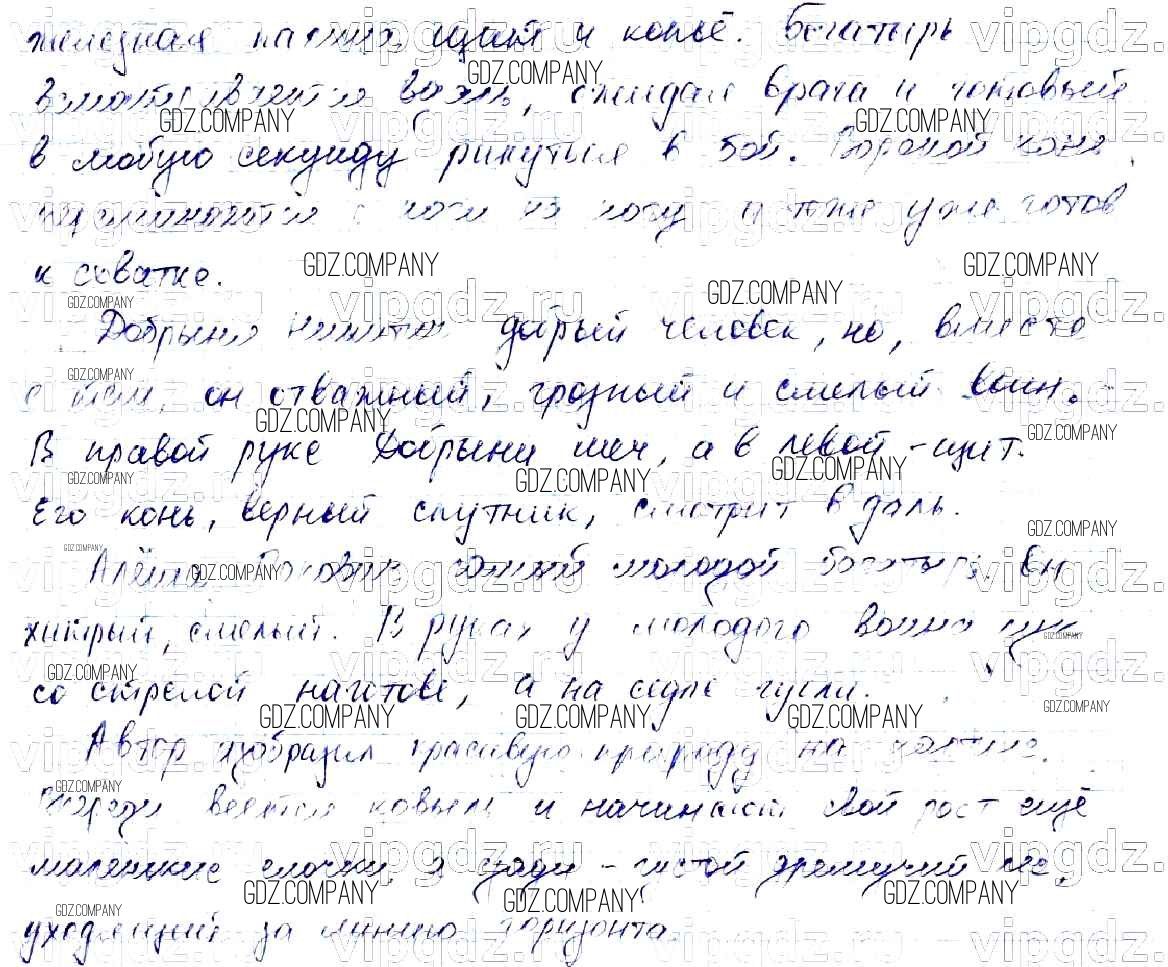 железная палица, щит и копьё. Богатырь
всматривается вдаль, ожидая врага и готовый
в любую секунду ринуться в бой. Вороной конь
переминается с ноги на ногу и тоже уже готов
к схватке.
Добрыня Никитич добрый человек, но, вместе
с тем, он отважный, грозный и смелый воин.
В правой руке Добрыни меч, а в левой - щит.
Его конь, верный спутник, смотрит вдаль.
Алёша Попович самый молодой богатырь. Он
хитрый, смелый. В руках у молодого воина лук
со стрелой наготове, а на седле гусли.
Автор изобразил красивую природу на полотне.
Впереди ковыль и начинают свой рост ещё
маленькие ёлочки, а сзади - густой дремучий лес,
уходящий за линию горизонта.
GDZ.COMPANY
vipgdz.ru